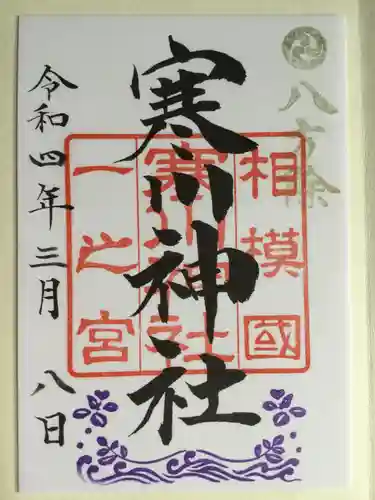 八方除
相模國
寒川神社
一之宮
寒川神社
令和四年三月八日